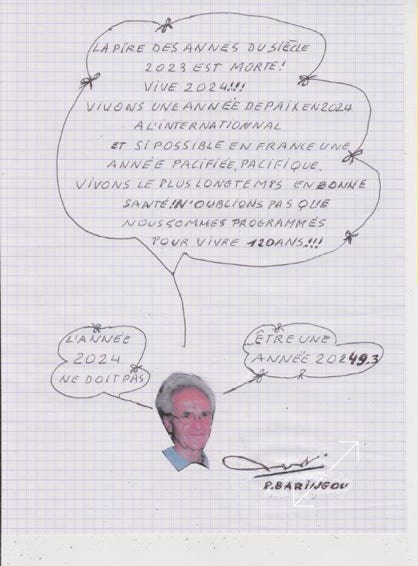 LA PIRE DES ANNÉS DU SIÈCLE
2023 EST MORTE!
VIVE 2024!!!
VIVONS UNE ANNÉE DE PAIX EN 2024
A L'INTERNATIONNAL
ET SI POSSIBLE EN FRANCE UNE
ANNÉE PACIFIÉE, PACIFIQUE.
VIVONS LE PLUS LONGTEMPS EN BONNE
SANTÉ! N'OUBLIONS PAS QUE
NOUS SOMMES PROGRAMMÉS
POUR VIVRE 120 ANS!!!
L'ANNÉE
2024
NE DOIT PAS
ÊTRE UNE
ANNÉE 20249.3
P. BARINGOU